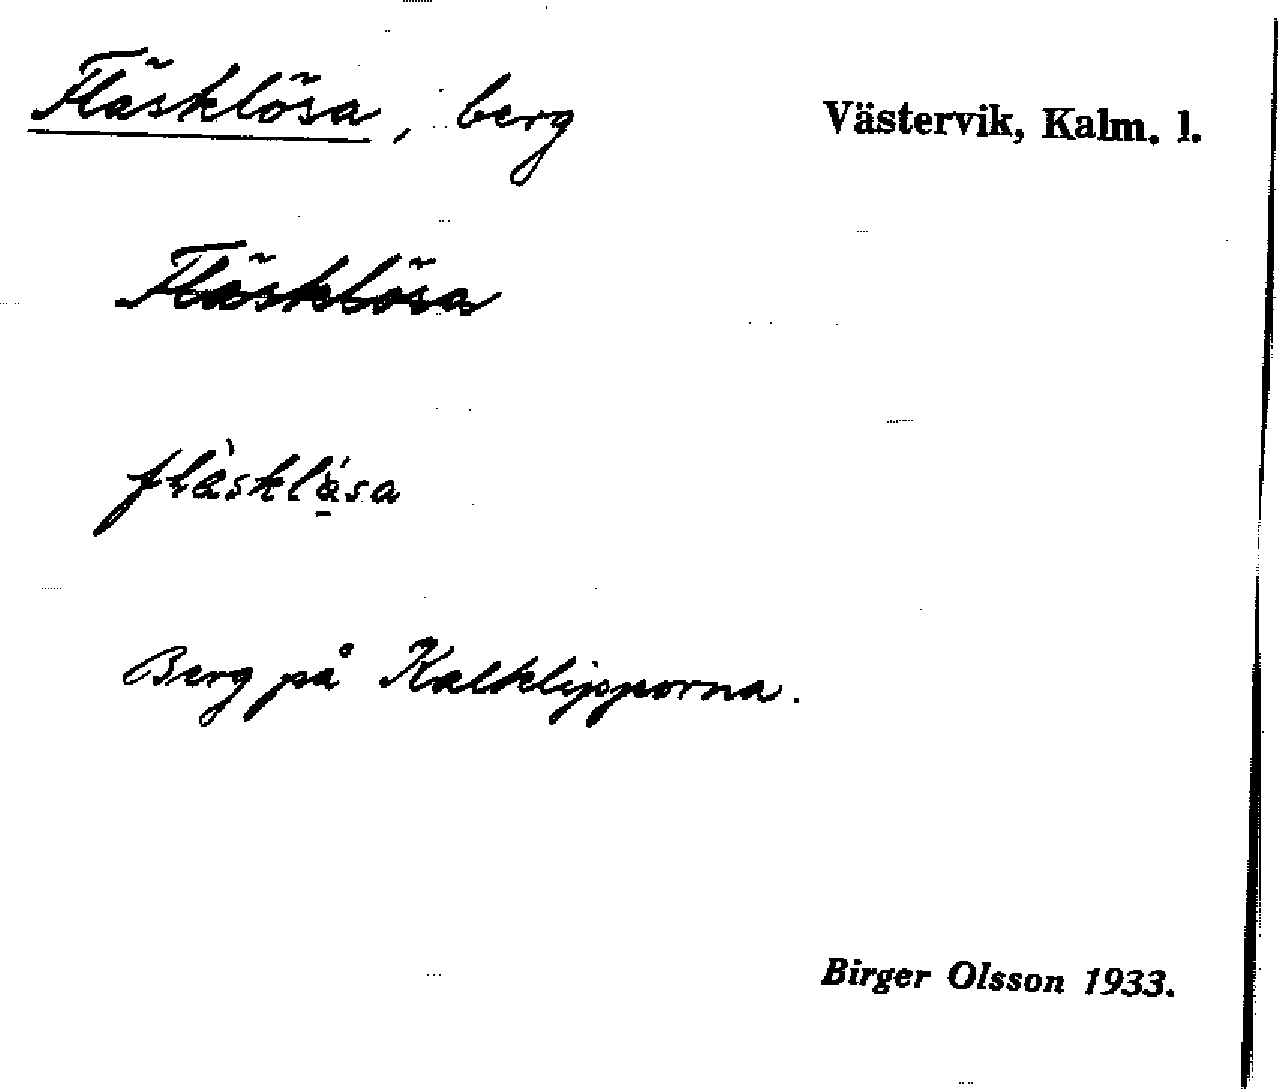 Fläsklösa, berg
Västervik, Kalm. l.
Fläsklösa
flàsklá̱sa
Berg på Kalklipporna.
Birger Olsson 1933.